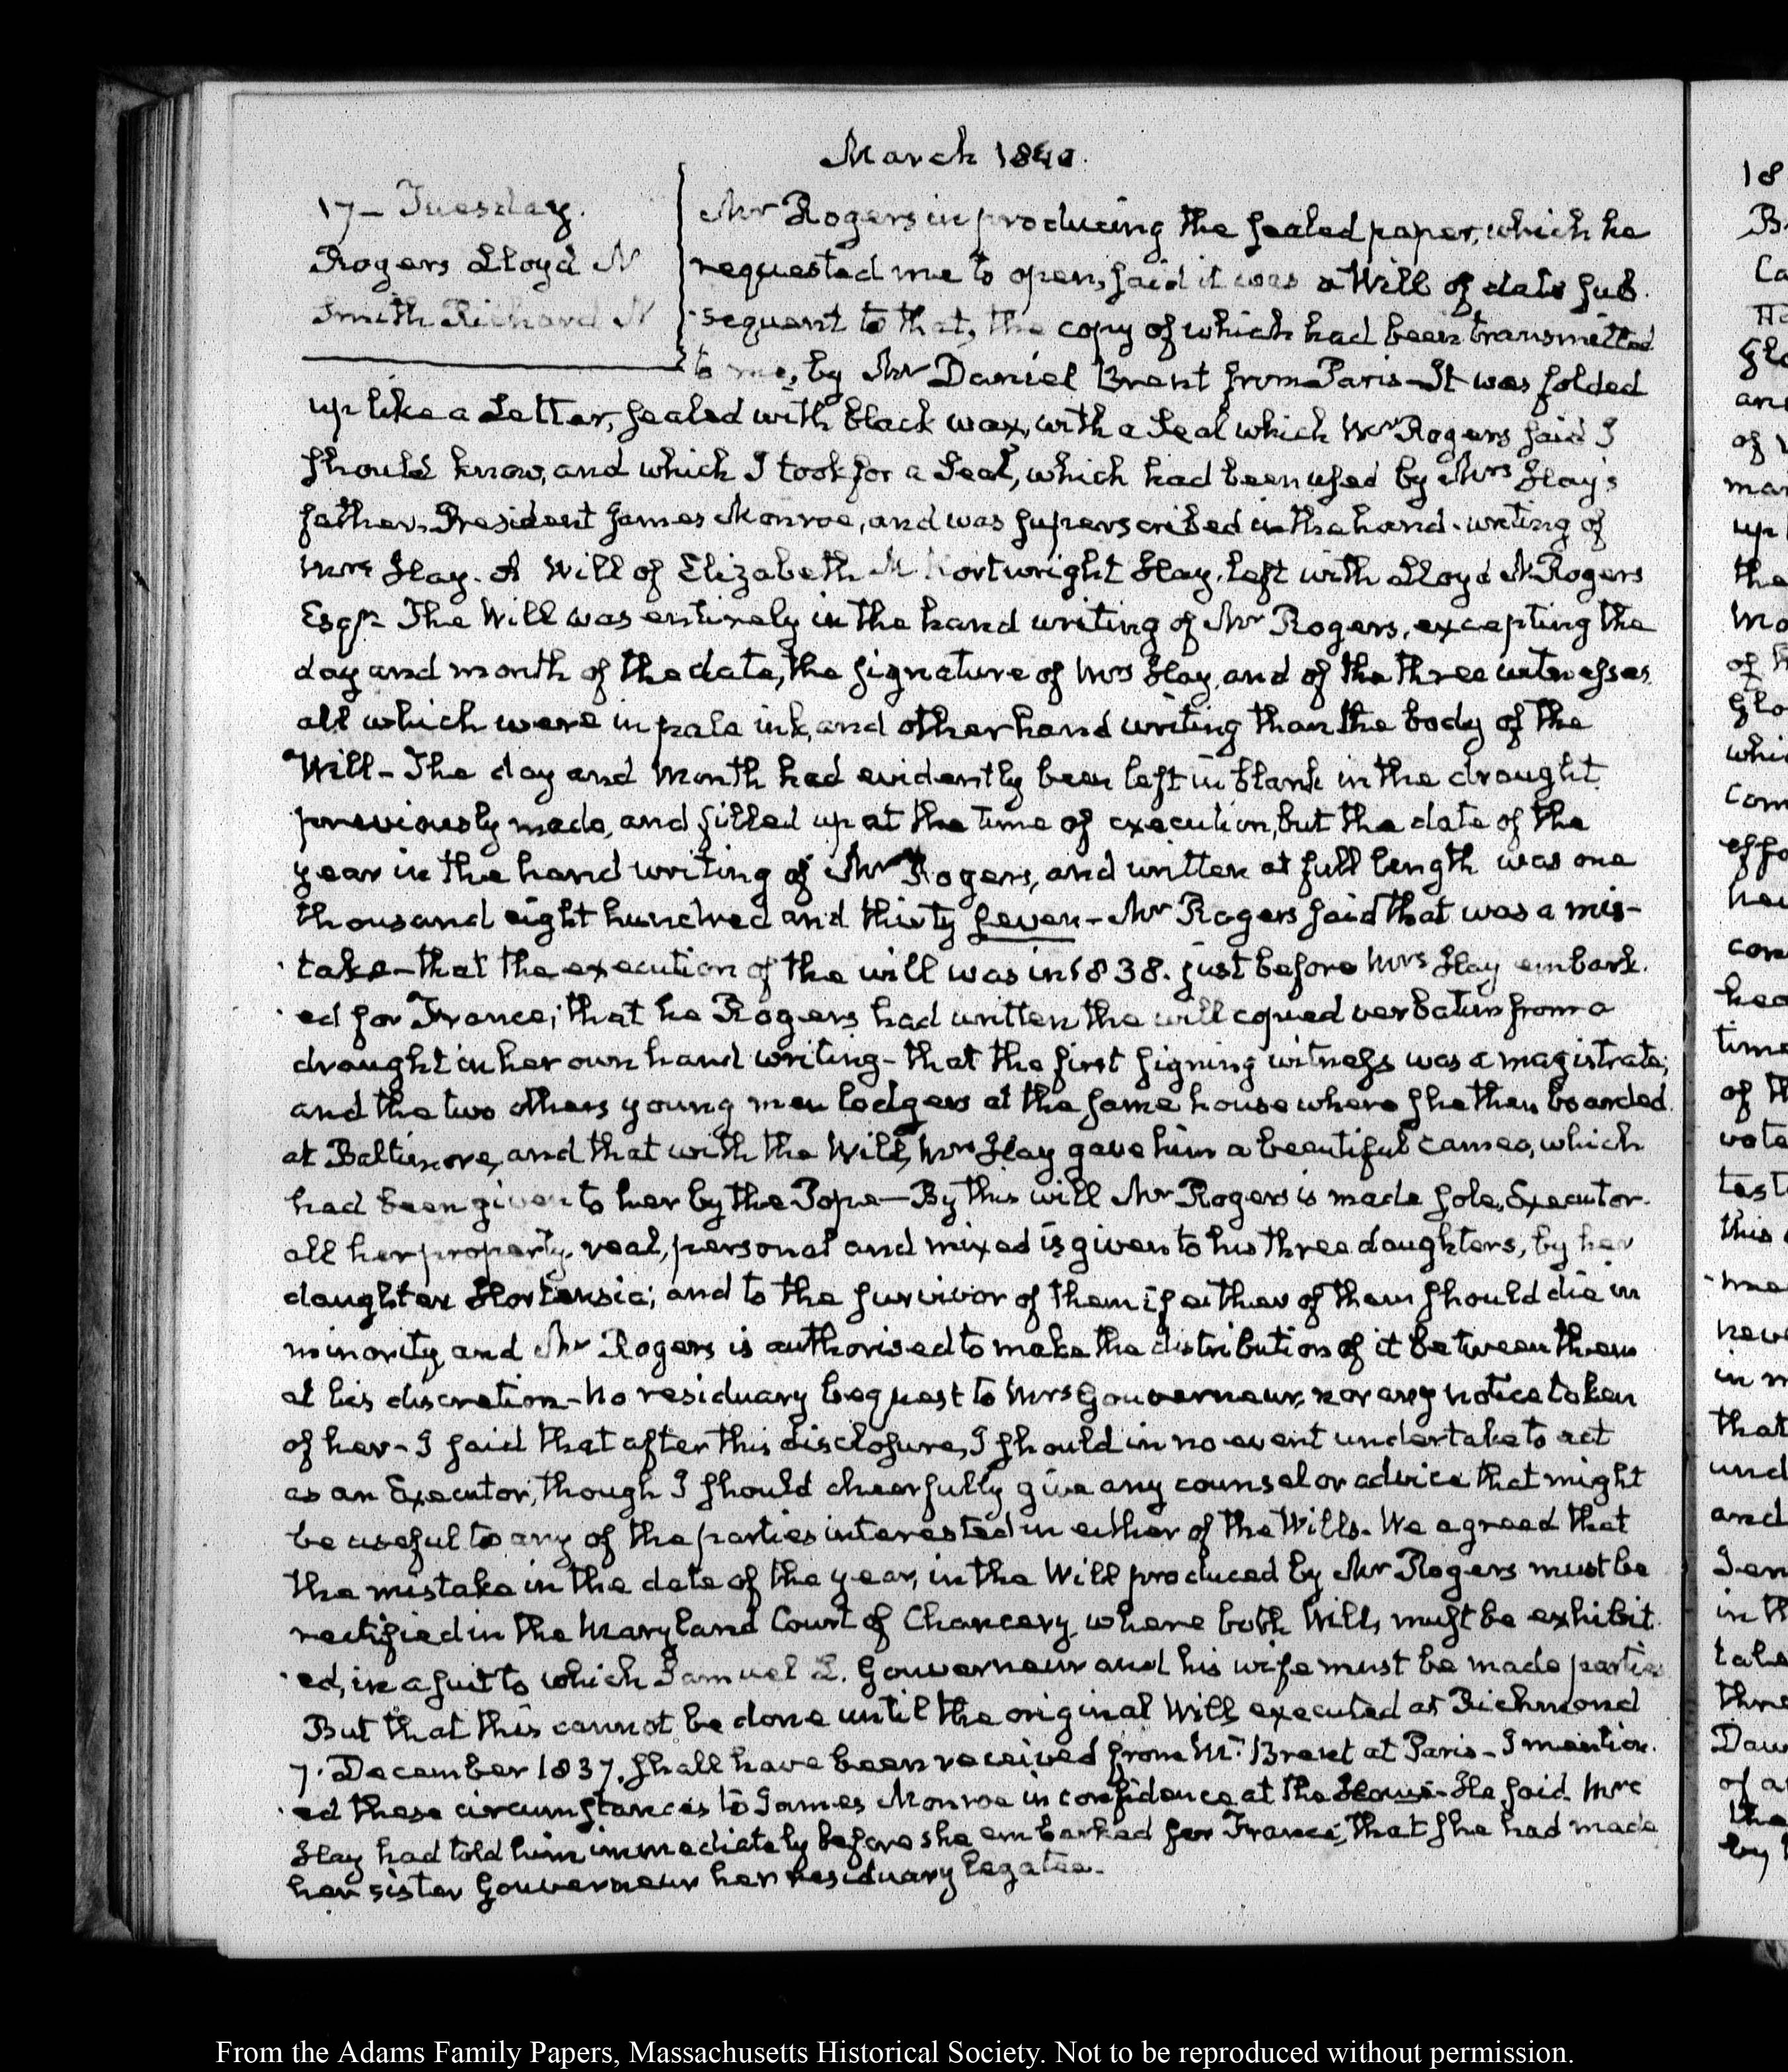 March 1840.
17– Tuesday.
Rogers Lloyd N
Smith Richard N
Mr Rogers in producing the sealed paper, which he
requested me to open, said it was a Will of date sub-
-sequent to that, the copy of which had been transmitted
to me, by Mr Daniel Brent from Paris– It was folded
up like a Letter, sealed with black wax, with a Seal which Mr Rogers said I
should know, and which I took for a Seal, which had been used by Mrs Hay's
father, President James Monroe, and was superscribed in the hand-writing of
Mrs Hay. A Will of Elizabeth M Kortwright Hay, left with Lloyd N. Rogers
Esqr. The Will was entirely in the hand writing of Mr Rogers, excepting the
day and month of the date, the signature of Mrs Hay, and of the three witnesses,
all which were in pale ink, and other hand writing than the body of the
Will– The day and month had evidently been left in blank in the draught
previously made, and filled up at the time of execution, but the date of the
year in the hand writing of Mr Rogers, and written at full length was one
thousand eight hundred and thirty seven– Mr Rogers said that was a mis-
-take– that the execution of the will was in 1838. just before Mrs Hay embark-
-ed for France; that he Rogers had written the will copied verbatim from a
draught in her own hand writing– that the first signing witness was a magistrate;
and the two others young men lodgers at the same house where she then boarded
at Baltimore, and that with the Will, Mrs Hay gave him a beautiful cameo, which
had been given to her by the Pope– By this will Mr Rogers is made sole Executor.
all her property, real, personal and mixed is given to his three daughters, by her
daughter Hortensia; and to the survivor of them if either of them should die in
minority, and Mr Rogers is authorised to make the distribution of it between them
at his discretion– No residuary bequest to Mrs Gouverneur, nor any notice taken
of her– I said that after this disclosure, I should in no event undertake to act
as an Executor, though I should cheerfully give any counsel or advice that might
be useful to any of the parties interested in either of the Wills. We agreed that
the mistake in the date of the year, in the Will produced by Mr Rogers must be
rectified in the Maryland Court of Chancery, where both Wills, must be exhibit-
-ed, in a suit to which Samuel L. Gouverneur and his wife must be made parties
But that this cannot be done until the original Will, executed at Richmond
7. December 1837. shall have been received from Mr. Brent at Paris– I mention-
-ed these circumstances to James Monroe in confidence at the House– He said Mrs
Hay had told him immediately before she embarked for France, that she had made
her sister Gouverneur her residuary legatee.
From the Adams Family Papers, Massachusetts Historical Society. Not to be reproduced without permission.